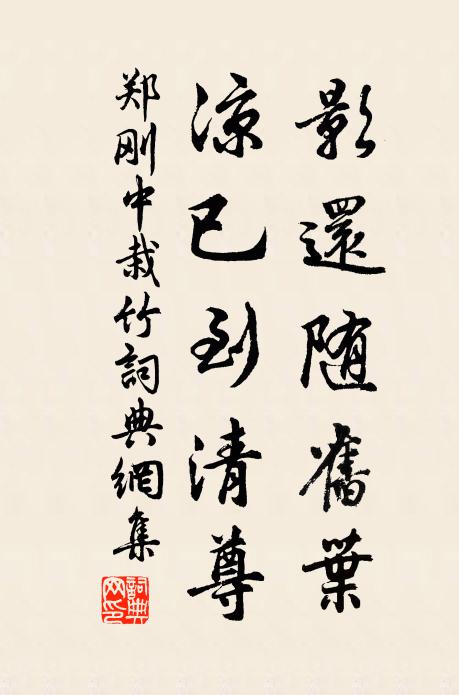 影還随舊葉
涼已到清尊
郑刚中栽竹詞典網集
詞典网印